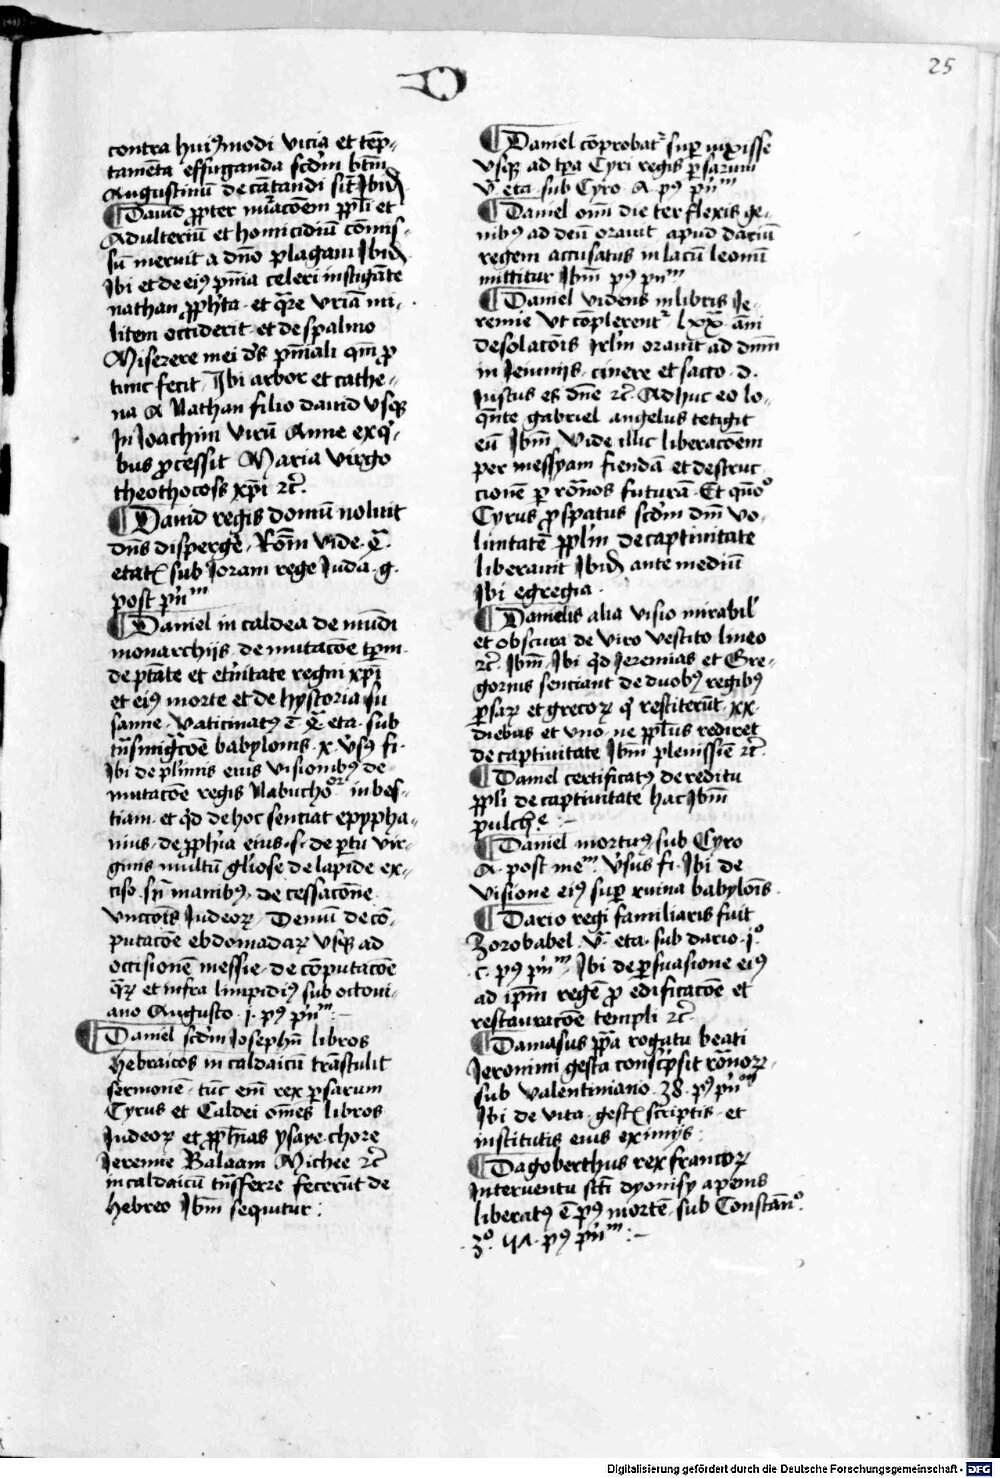 25
D
contra huiꝰmodi vicia et tēp-
tamēta effuganda scd̄m btm̄
Augustinū decātandi sūt Ibid
¶ Dauid ꝓpter nūacōem ppl̄i et
Adulteriū et homicidiū cōmis-
sū meruit a dn̄o plagam Ibid
Ibi et de eiꝰ pn̄ia celeri instigāte
nathan ꝓph̄ta et qr̄e vriā mi-
litem occiderit et de spalmo
Miserere mei d̄s pn̄iali qm̄ ꝓ
tunc fecit Ibi arbor et cathe-
na A Nathan filio dauid vsqꝫ
In Joachim virū Anne ex qͥ-
bus ꝓcessit Maria virgo
theothocoss xp̄i ⁊c̄.
¶ Dauid regis domū noluit
dn̄s disperge Rōm vide
etatꝭ sub Joram rege Juda g.
post pn̄m
¶ Daniel in caldea de mūdi
monarchijs de mutacōe tpm̄
de ptāte et et̄nitate regni xp̄i
et eiꝰ morte et de hystoria su
sanne vaticinatꝰ ē eta. sub
tn̄smigr̄coē babylonis x v̄sꝰ fi.
Ibi de plimis eius visionibꝰ de
mutacōe regis Nabuchoor in bes-
tiam et qd de hoc senciat epypha-
nius de ꝓph̄ia eius s. de ꝑtu vir-
ginis multū gl̄iose de lapide ex-
ciso sn̄ manibꝰ de cessacōne
vnccōis Judeoꝝ Demū de cō-
putacōe ebdomadaꝝ vsqꝫ ad
occisionē messie de cōputacōe
et infra limpidiꝰ sub octoui-
ano Augusto i. pꝰ pn̄m
¶ Daniel scd̄m Josephū libros
hebraicos in caldaicū trāstulit
sermonē tūc em̄ rex ꝑsarum
Cyrus et Caldei om̄es libros
Judeoꝝ et ꝓph̄ias ysaye chore
Jeremie Balaam Michee ⁊c̄
in caldaicū tn̄sferre fecerūt de
hebreo Ibm̄ sequitur :
¶ Daniel cōprobatr suꝑ vixisse
vsqꝫ ad tꝑa Cyri regis ꝑsarum
v. eta. sub Cyro A pꝰ pn̄m
¶ Daniel om̄i die ter flexis ge-
nibꝰ ad deū orauit apud dariū
regem accusatus in lacū leonū
mittitur Ibm̄ pꝰ pn̄m
¶ Daniel videns in libris Je-
remie vt cōplerentr lxx āni
desolacōis Jrl̄m orauit ad dnm̄
in Jeiunijs cinere et sacco d.
Justus es dn̄e ⁊c̄ Adhuc eo lo-
qn̄te gabriel angelus tetigit
eū Ibm̄ Vide illic liberacōem
per messyam fiendā et destruc-
cionē ꝑ rōnos futurā Et qūoo
Cyrus ꝓspatus scd̄m dn̄i vo-
luntatē ppl̄m de captiuitate
liberauit Ibid ante mediū
Ibi egregia
¶ Danielis alia visio mirabil
et obscura de viro vestito lineo
⁊c̄ Ibm̄ Ibi qd Jeremias et Gre-
gorius senciant de duobꝰ regibꝰ
ꝑsaꝝ et grecoꝝ qͥ restiterūt xx
diebus et vno ne ppl̄us rediret
de captiuitate Ibm̄ plenissīe ⁊c̄.
¶ Daniel certificatꝰ de reditu
ppl̄i de captiuitate hac Ibm̄
pulchre
¶ Daniel mortuꝰ sub Cyro
A. post mem v̄sus fi. Ibi de
visione eiꝰ suꝑ ruina babylōis
¶ Dario regi familiaris fuit
Zorobabel v. eta. sub dario io
c. pꝰ pn̄m Ibi de ꝑsuasione eiꝰ
ad ipm̄ regē ꝓ edificacōe et
restauracōe templi ⁊c̄
¶ Damasus ppa rogatu beati
Jeronimi gesta conscpsit rōnoꝝ
sub valentiniano 38 pꝰ pn̄m
Ibi de vita gestꝭ scriptis et
institutis eius eximijs :
¶ Dagoberthus rex francoꝝ
Interuentu scti dyonisy apenis
liberatꝰ ē pꝰ mortē sub Constāno
3o. pꝰ pn̄m :-
Digitalisierung gefördert durch die Deutsche Forschungsgemeinschaft - DFG